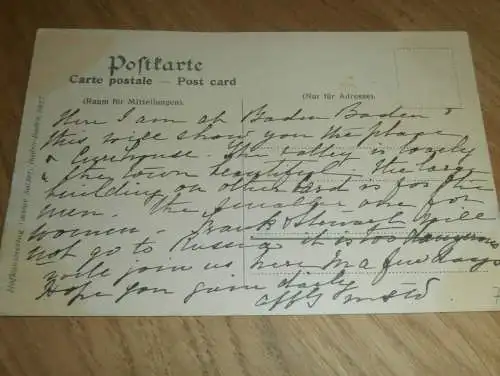 Postkarte
Carte postale — Post card
(Raum für Mitteilungen).
(Nur für Adresse).
Here I am at Baden Baden &
this will show you the place
& Curehouse. The valley is lovely
& the town beautiful. The large
building on other card is for the
men. The smaller one for
women Frank & will
not go to Russia it is too dangerous
will join us here in a few days
Hope you gain daily
affly